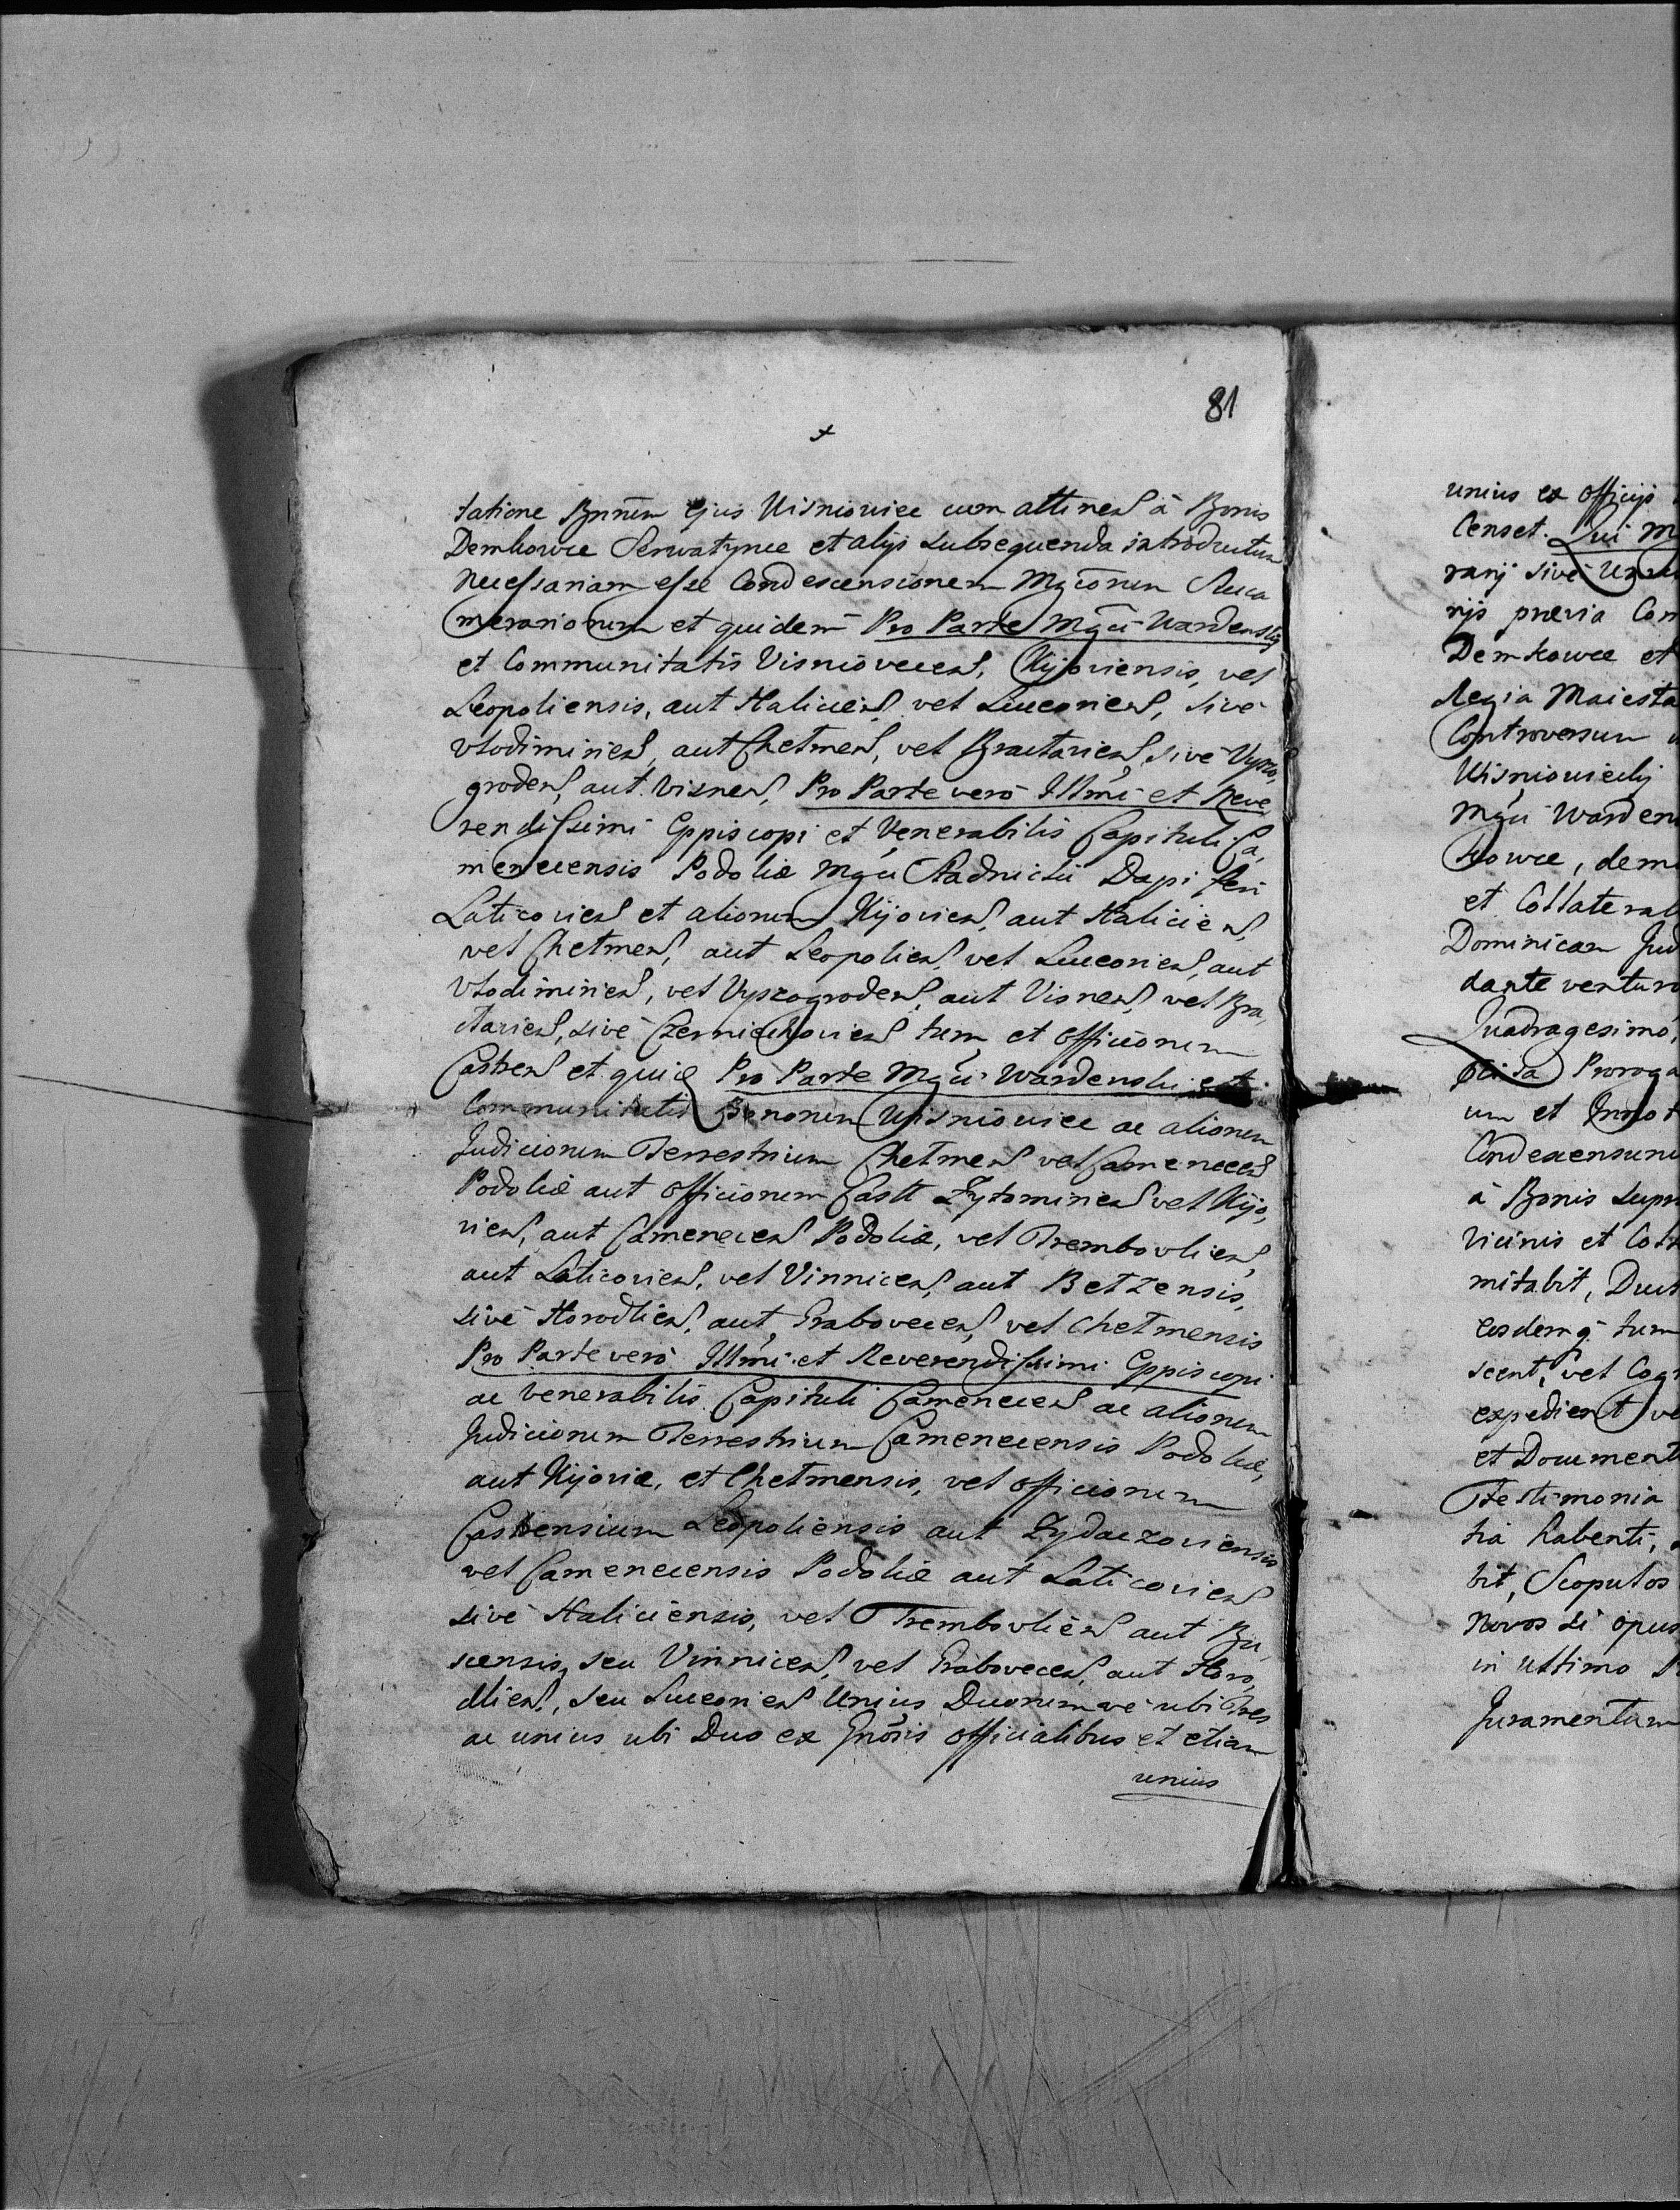 81
tatione Bnrūm ejus Wisniowiec cum attinen à Bonis
Demkowce Serwatynce et alijs subsequenda introductum
necessariam esse Condescensionem Mgcōrum Succa
merariorum et quidem Pro Parte Mgci Wardenskij
et Communitatis Visniovecen, Kijoviensis, vel
Leopoliensis, aut Halicien, vel Luceorien, sive
Vlodimirien, aut Chelmen, vel Braclavien, sive Vyszo,
groden, aut Visnen, Pro Parte vero Illmi et Reve
rendissimi Eppiscopi et Venerabilis Capituli Ca,
menecensis Podoliæ Mgci Stadnicki Dapiferi
Laticovien et aliorum Kijovien, aut Halicien,
vel Chelmen, aut Leopolien, vel Luceorien, aut
Vlodimirien, vel Vyszogroden, aut Visnen, vel Bra,
clavien, sive Czerniechovien tum et officiorum
Castren et quid Pro Parte Mgci Wardenski et
Communitatis Bonorum Wisniowiec ac aliorum
Judiciorum Terrestrium Chelmen vel Camenecen
Podoliæ aut officiorum Castr Zytomirien vel Kijo,
vien, aut Camenecen Podoliæ, vel Trembovlien,
aut Laticovien, vel Vinnicen, aut Betzensis,
sive Horodlien, aut Grabovecen, vel Chelmensis
Pro Parte vero Illmi et Reverendissimi Eppiscopi
ac Venerabilis Capituli Camenecen ac aliorum
Judiciorum Terrestrium Camenecensis Podoliæ,
aut Kijoviæ, et Chelmensis, vel officiorum
Castrensium Leopoliensis aut Zydaczoviensis
vel Camenecensis Podoliæ aut Laticovien
sive Haliciensis, vel Trembovlien aut Bu,
scensis, seu Vinnicen, vel Grabovecen, aut Horo,
dlien, seu Luceorien Unius Duorumve ubi Tres
ac unius ubi Duo ex Gnōsis officialibus et etiam
unius
unius ex officijs
Censet. Qui M
rarij sive
rijs prævia Con
Demkowce et
Regia Maiesta
Controversum
Wisniowiecky
Mgci Warden
kowce, dem
et Collateral
Dominicam Jud
dante venturo
Quadragesimo,
Proroga
um et Innot
Condescensuru
à Bonis supr
Vicinis et Coll
mitabit, Duct
eosdemq tum
scent, vel Cog
expedient ve
et Documento
Testimonia
tia habenti,
bit, Scopulos
Novos si opus
in ultimo
Juramentum